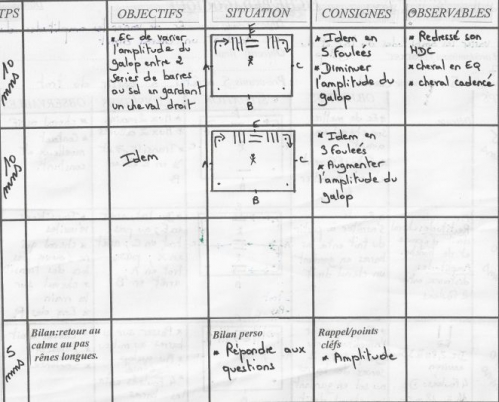 TPS
OBJECTIFS
SITUATION
CONSIGNES
OBSERVABLES
10
mns
* EC de varier
l'amplitude du
galop entre 2
series de barres
au sol en gardant
un cheval droit
E
A
C
B
* Idem en
5 foulées
* Diminuer
l'amplitude du
galop
* Redressé son
HDC
* cheval en EQ
* cheval cadencé
10
mns
Idem
E
A
C
B
* Idem en
3 foulées
* Augmenter
l'amplitude du
galop
5
mns
Bilan:retour au
calme au pas
rênes longues.
Bilan perso
* Répondre aux
questions
Rappel/points
cléfs
* Amplitude